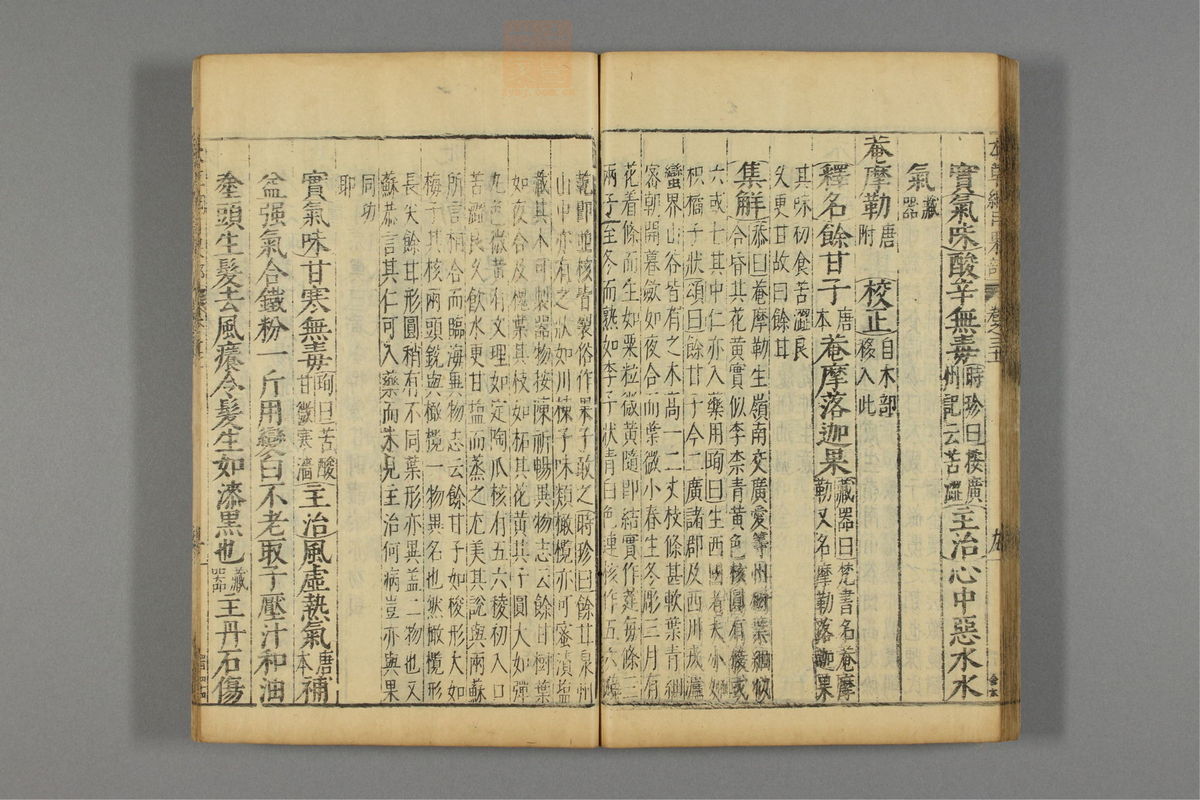 實氣味酸辛無毒時珍曰棱廣州記云苦澀主治心中惡水水
氣藏器
菴摩勒唐附 校正自木部移入此
釋名餘甘子唐本菴摩落迦果藏器曰梵書名菴摩勒又名摩勒落迦果
其味初食苦澀良
久更甘故曰餘甘
集解恭曰菴摩勒生嶺南交廣愛等州樹葉細似
合昏其花黃實似李柰青黃色核圓有棱或
六或七其中仁亦入藥用珣曰生西國者大小如
枳橘子狀頌曰餘甘子今二廣諸郡及西川戎瀘
蠻界山谷皆有之木高一二丈枝條甚軟葉青細
密朝開暮斂如夜合而葉微小春生冬彫三月有
花着條而生如粟粒微黃隨即結實作莢每條三
兩子至冬而熟如李子狀青白色連核作五六瓣
乾即並核皆裂俗作果子啖之時珍曰餘甘泉州
山中亦有之狀如川楝子味類橄欖亦可蜜漬鹽
藏其木可製器物按陳祈暢異物志云餘甘樹葉
如夜合及槐葉其枝如柘其花黃其子圓大如彈
丸色微黃有文理如定陶瓜核有五六棱初入口
苦澀良久飲水更甘鹽而蒸之尤美其說與兩蘇
所言相合而臨海異物志云餘甘子如梭形大如
梅子其核兩頭銳與橄欖一物異名也然橄欖形
長尖餘甘形圓稍有不同葉形亦異蓋二物也又
蘇恭言其仁可入藥而未見主治何病豈亦與果
同功
耶
實氣味甘寒無毒珣曰苦酸甘微寒濇主治風虛熱氣唐本補
益强氣合鐵粉一斤用變白不老取子壓汁和油
塗頭生髮去風癢令髮生如漆黑也藏器主丹石傷